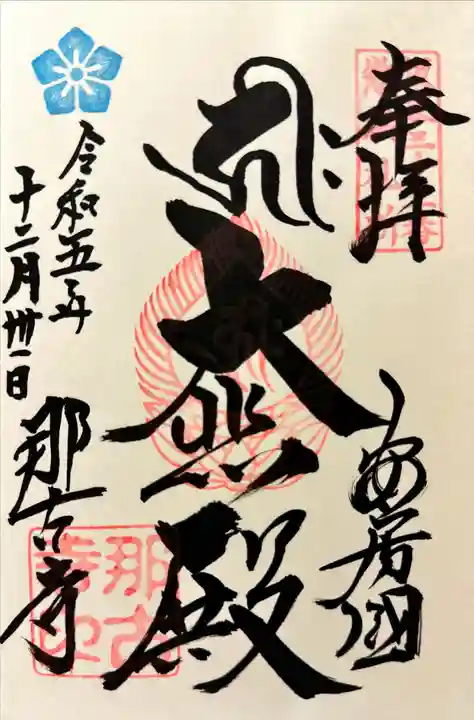 奉拝
安房國
𑖮𑖿𑖨𑖱𑖾
大悲殿
令和五年
十二月卅一日
那古寺
那古寺印